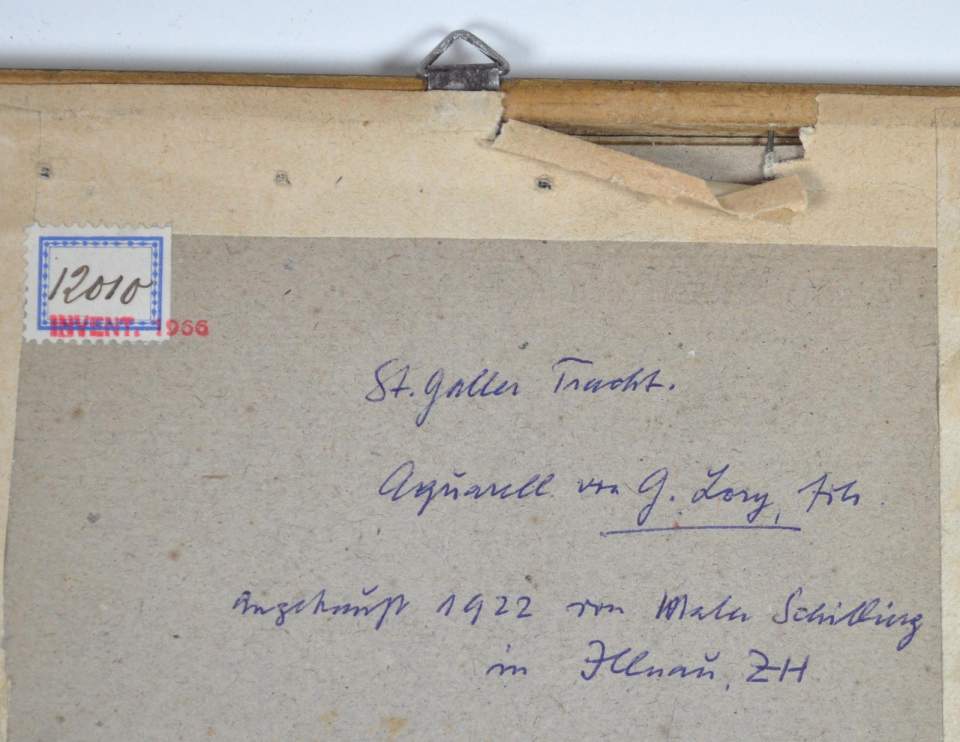 12010
INVENT. 1966
St. Galler Tracht.
Aquarell von G. Lory, fils.
angekauft 1922 von Maler Schilling
in Illnau, ZH